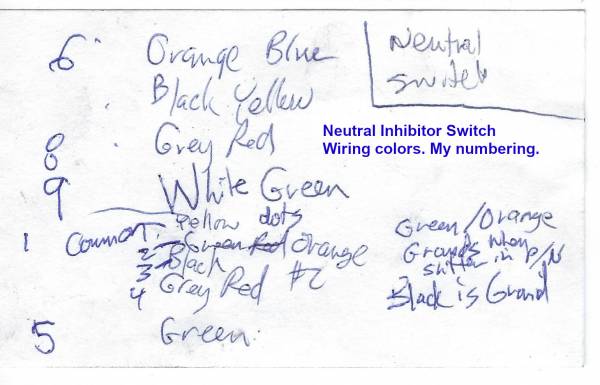 6 Orange Blue
Black Yellow
8 Grey Red
9 White Green
Yellow dots
1 Common.
2 Green Red Orange
3 Black
4 Grey Red #2
5 Green
Neutral
Switch
Neutral Inhibitor Switch
Wiring colors. My numbering.
Green/Orange
Grounds when
shifter in P/N
Black is Ground